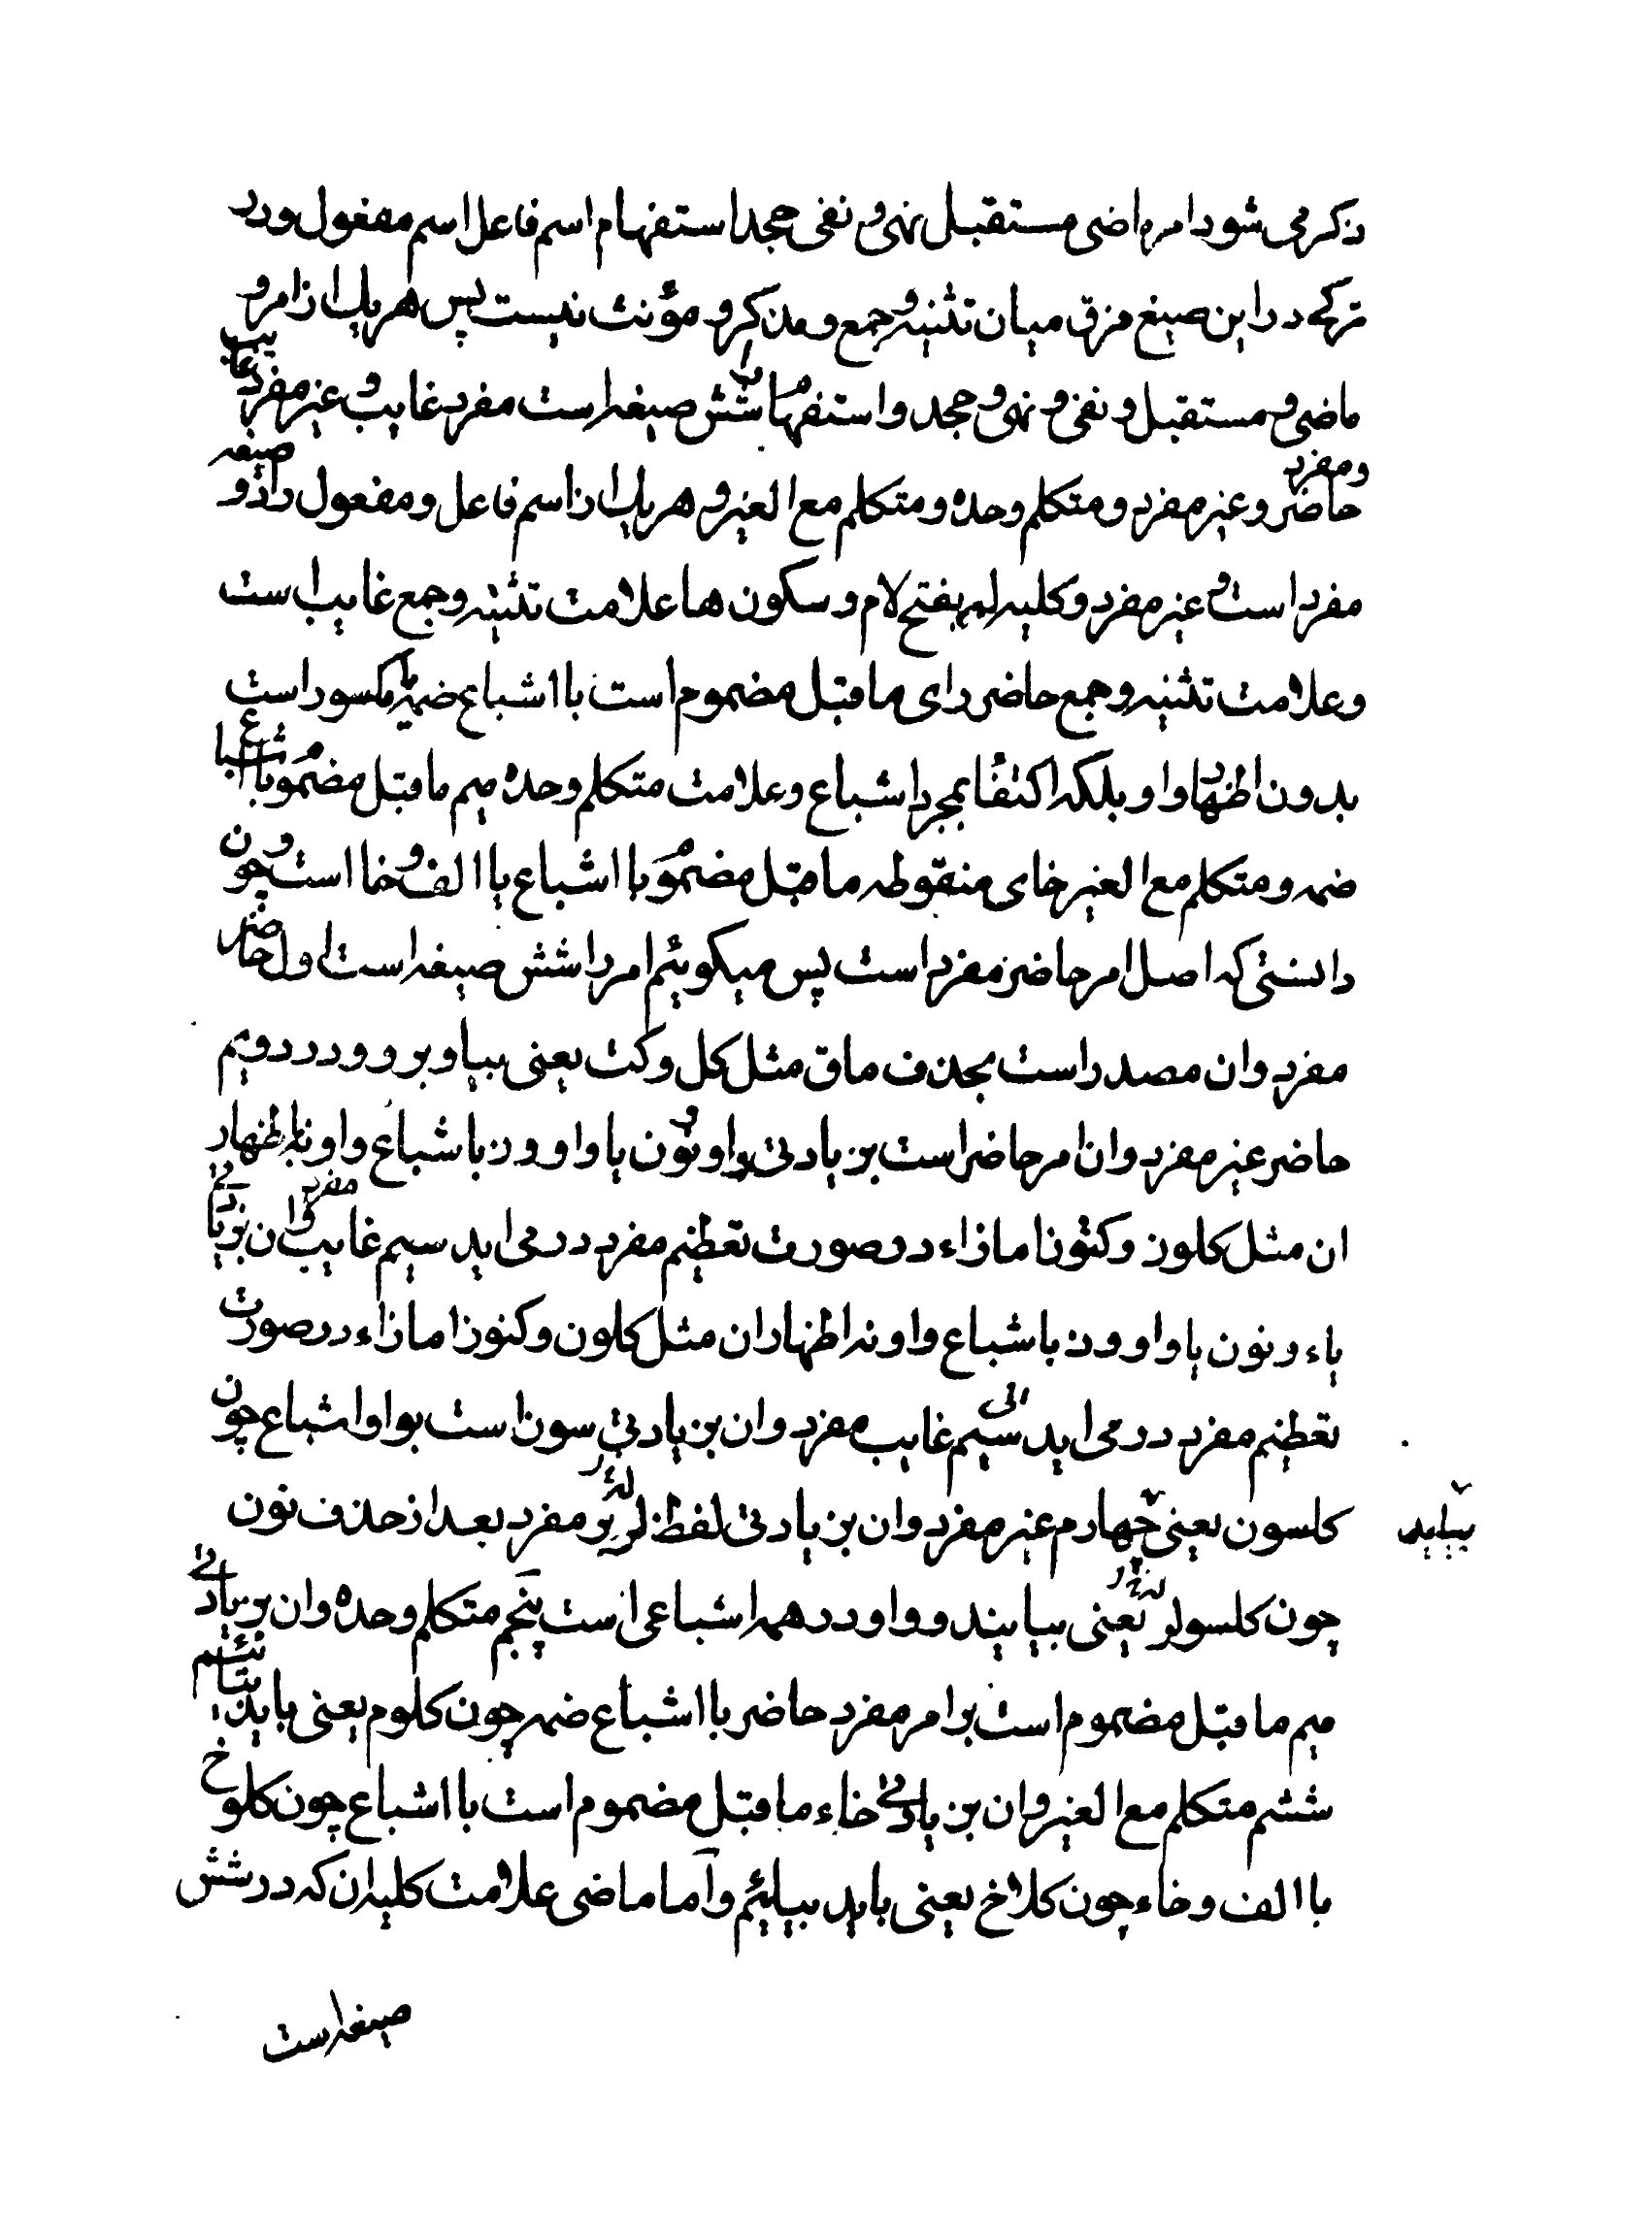 ذکر می شود امر ماضی مستقبل نهی و نفی جحد استفهام اسم فاعل اسم مفعول و در
ترکی در این صیغ فرق میان تثنیه و جمع و مذکر و مؤنث نیست پس هر یک از امر و
ماضی و مستقبل و نفی و نهی و جحد و استفهام را شش صیغه است مفرد غایب و غیر مفرد غایب
و مفرد حاضر و غیر مفرد و متکلم وحده و متکلم مع الغیر و هر یک از اسم فاعل و مفعول را دو صیغه
مفرد است و غیر مفرد و کلیه لر بفتح لام و سکون ها علامت تثنیه و جمع غایب است
و علامت تثنیه و جمع حاضر رای ما قبل مضموم است با اشباع ضمه یا مکسور است
بدون اظهار واو بلکه اکتفا بمجرد اشباع و علامت متکلم وحده میم ما قبل مضموم با اشباع
ضمه و متکلم مع الغیر خای منقوطه ما قبل مضموم با اشباع یا الف و خا است و چون
دانستی که اصل امر حاضر مفرد است پس میکوییم امر را شش صیغه است اول حاضر
مفرد وان مصدر است بحذف ماق مثل کل و کت یعنی بیا و برو و در دویم
حاضر غیر مفرد وان امر حاضر است بزیادتی واو و نون یا واو و ن باشباع واو نه اظهار
ان مثل کلون و کتون اما زاء در صورت تعظیم مفرد در می اید سیم غایب مفرد وان بزیادتی
یاء و نون یا واو و ن باشباع واو نه اظهار ان مثل کلون و کتون اما زاء در صورت
تعظیم مفرد در می اید سیم غایب مفرد وان بزیادتی سون است بواو اشباع چون
کلسون یعنی چهارم غیر مفرد وان بزیادتی لفظ لر بر مفرد بعد از حذف نون
بیاید
چون کلسولر یعنی بیایند و واو در همه اشباعی است پنجم متکلم وحده وان بزیادتی
میم ما قبل مضموم است بر امر مفرد حاضر با اشباع ضمه چون کلوم یعنی باید بیایم
ششم متکلم مع الغیر وان بزیادتی خاء ما قبل مضموم است با اشباع چون کلوخ
با الف و خاء چون کلاخ یعنی باید بیاییم و اما ماضی علامت کلیه ان که در شش
صیغه است